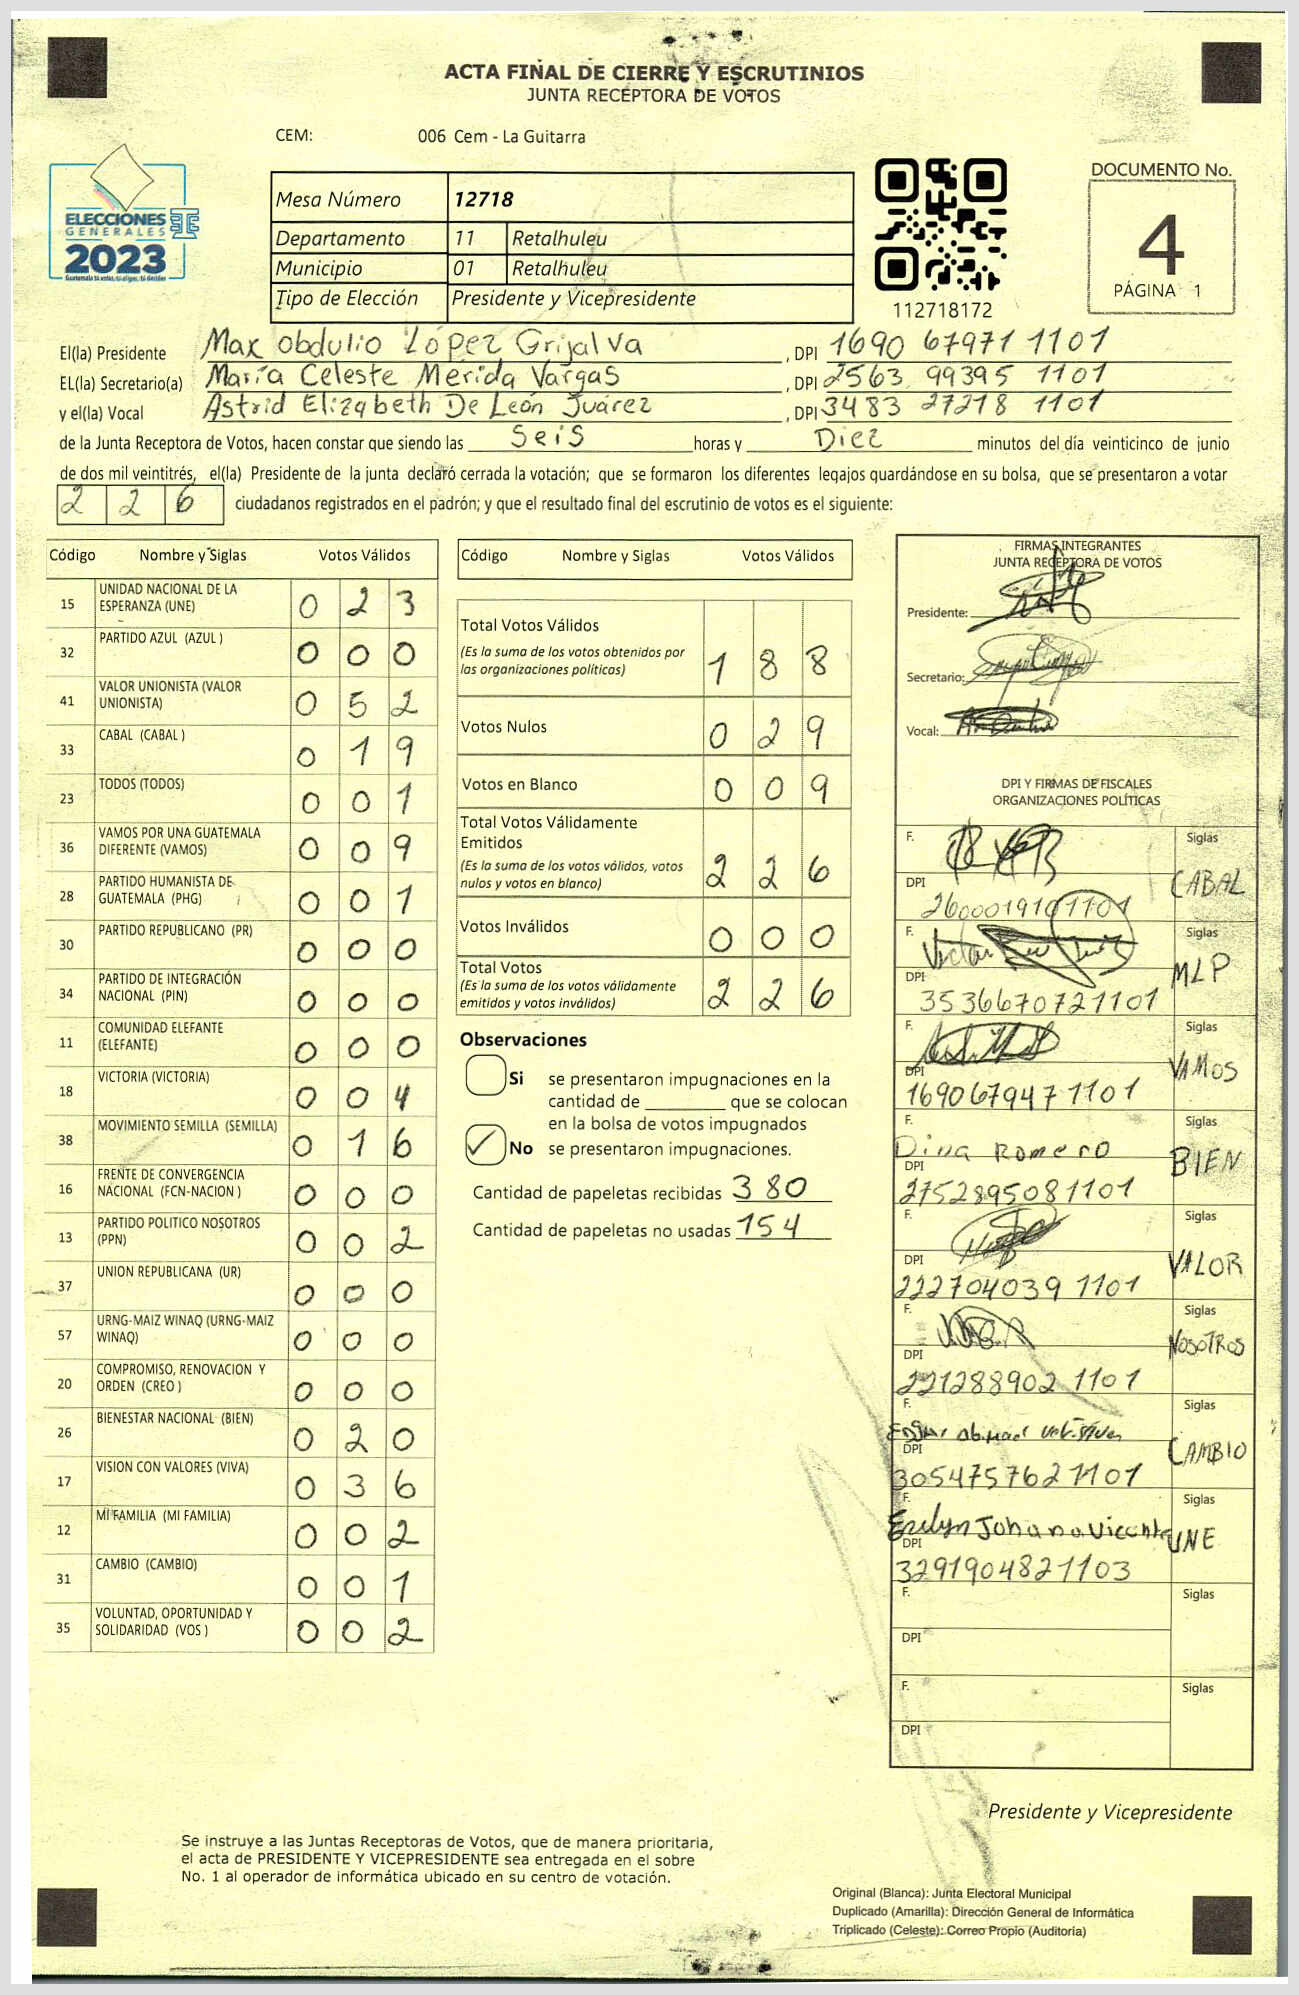 ACTA FINAL DE CIERRE Y ESCRUTINIOS
JUNTA RECEPTORA DE VOTOS
CEM: 006 Cem - La Guitarra
ELECCIONES
GENERALES
2023
Guatemala tú votas, tú eliges, tú decides
Mesa Número 12718
Departamento 11 Retalhuleu
Municipio 01 Retalhuleu
Tipo de Elección Presidente y Vicepresidente
112718172
DOCUMENTO No.
4
PÁGINA 1
El(la) Presidente Max Obdulio López Grijalva, DPI 1690 67971 1101
EL(la) Secretario(a) María Celeste Merida Vargas, DPI 2563 99395 1101
y el(la) Vocal Astrid Elizabeth De León Juárez, DPI 3483 27218 1101
de la Junta Receptora de Votos, hacen constar que siendo las Seis horas y Diez minutos del día veinticinco de junio
de dos mil veintitrés, el(la) Presidente de la junta declaró cerrada la votación; que se formaron los diferentes legajos guardándose en su bolsa, que se presentaron a votar
226 ciudadanos registrados en el padrón; y que el resultado final del escrutinio de votos es el siguiente:
Código Nombre y Siglas Votos Válidos
15 UNIDAD NACIONAL DE LA ESPERANZA (UNE) 0 2 3
32 PARTIDO AZUL (AZUL ) 0 0 0
41 VALOR UNIONISTA (VALOR UNIONISTA) 0 5 2
33 CABAL (CABAL ) 0 1 9
23 TODOS (TODOS) 0 0 1
36 VAMOS POR UNA GUATEMALA DIFERENTE (VAMOS) 0 0 9
28 PARTIDO HUMANISTA DE GUATEMALA (PHG) 0 0 1
30 PARTIDO REPUBLICANO (PR) 0 0 0
34 PARTIDO DE INTEGRACIÓN NACIONAL (PIN) 0 0 0
11 COMUNIDAD ELEFANTE (ELEFANTE) 0 0 0
18 VICTORIA (VICTORIA) 0 0 4
38 MOVIMIENTO SEMILLA (SEMILLA) 0 1 6
16 FRENTE DE CONVERGENCIA NACIONAL (FCN-NACION ) 0 0 0
13 PARTIDO POLITICO NOSOTROS (PPN) 0 0 2
37 UNION REPUBLICANA (UR) 0 0 0
57 URNG-MAIZ WINAQ (URNG-MAIZ WINAQ) 0 0 0
20 COMPROMISO, RENOVACION Y ORDEN (CREO ) 0 0 0
26 BIENESTAR NACIONAL (BIEN) 0 2 0
17 VISION CON VALORES (VIVA) 0 3 6
12 MI FAMILIA (MI FAMILIA) 0 0 2
31 CAMBIO (CAMBIO) 0 0 1
35 VOLUNTAD, OPORTUNIDAD Y SOLIDARIDAD (VOS ) 0 0 2
Código Nombre y Siglas Votos Válidos
Total Votos Válidos
(Es la suma de los votos obtenidos por
las organizaciones políticas) 1 8 8
Votos Nulos 0 2 9
Votos en Blanco 0 0 9
Total Votos Válidamente
Emitidos
(Es la suma de los votos válidos, votos
nulos y votos en blanco) 2 2 6
Votos Inválidos 0 0 0
Total Votos
(Es la suma de los votos válidamente
emitidos y votos inválidos) 2 2 6
Observaciones
Si se presentaron impugnaciones en la
cantidad de ________ que se colocan
en la bolsa de votos impugnados
No se presentaron impugnaciones.
Cantidad de papeletas recibidas 380
Cantidad de papeletas no usadas 154
FIRMAS INTEGRANTES
JUNTA RECEPTORA DE VOTOS
Presidente:
Secretario:
Vocal:
DPI Y FIRMAS DE FISCALES
ORGANIZACIONES POLÍTICAS
F. Siglas CABAL
DPI 2600019101101
F. Siglas MLP
DPI 3536670721101
F. Siglas VAMOS
DPI 169067947 1101
F. Dina Romero Siglas BIEN
DPI 2752895081101
F. Siglas VALOR
DPI 222704039 1101
F. Siglas NOSOTROS
DPI 221288902 1101
F. Siglas CAMBIO
DPI 3054757621101
F. Evelyn Johana Vicente Siglas UNE
DPI 3291904821103
F. Siglas
DPI
F. Siglas
DPI
Presidente y Vicepresidente
Se instruye a las Juntas Receptoras de Votos, que de manera prioritaria,
el acta de PRESIDENTE Y VICEPRESIDENTE sea entregada en el sobre
No. 1 al operador de informática ubicado en su centro de votación.
Original (Blanca): Junta Electoral Municipal
Duplicado (Amarilla): Dirección General de Informática
Triplicado (Celeste): Correo Propio (Auditoría)